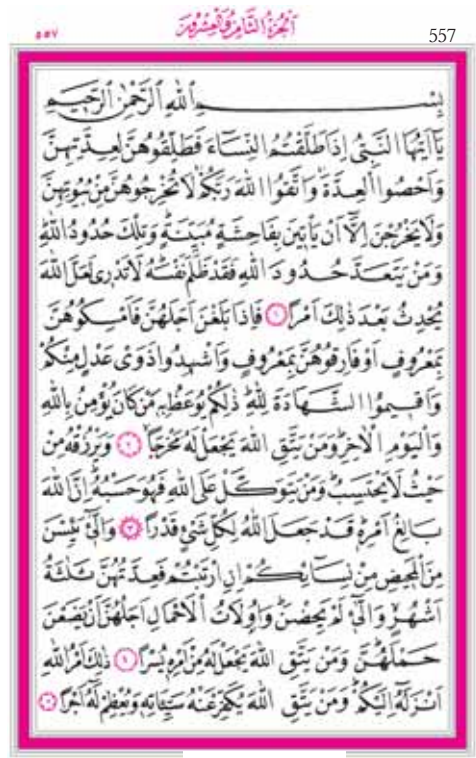 ٥٥٧ اَلْجُزْءُ الثَّامِنُ وَالْعِشْرُونَ 557
بِسْمِ اللّٰهِ الرَّحْمٰنِ الرَّحٖيمِ
يَٓا اَيُّهَا النَّبِيُّ اِذَا طَلَّقْتُمُ النِّسَٓاءَ فَطَلِّقُوهُنَّ لِعِدَّتِهِنَّ
وَاَحْصُوا الْعِدَّةَ وَاتَّقُوا اللّٰهَ رَبَّكُمْ لَا تُخْرِجُوهُنَّ مِنْ بُيُوتِهِنَّ
وَلَا يَخْرُجْنَ اِلَّٓا اَنْ يَأْتٖينَ بِفَاحِشَةٍ مُبَيِّنَةٍ وَتِلْكَ حُدُودُ اللّٰهِ
وَمَنْ يَتَعَدَّ حُدُودَ اللّٰهِ فَقَدْ ظَلَمَ نَفْسَهُ لَا تَدْرٖي لَعَلَّ اللّٰهَ
يُحْدِثُ بَعْدَ ذٰلِكَ اَمْرًا ﴿١﴾ فَاِذَا بَلَغْنَ اَجَلَهُنَّ فَاَمْسِكُوهُنَّ
بِمَعْرُوفٍ اَوْ فَارِقُوهُنَّ بِمَعْرُوفٍ وَاَشْهِدُوا ذَوَيْ عَدْلٍ مِنْكُمْ
وَاَقٖيمُوا الشَّهَادَةَ لِلّٰهِ ذٰلِكُمْ يُوعَظُ بِهٖ مَنْ كَانَ يُؤْمِنُ بِاللّٰهِ
وَالْيَوْمِ الْاٰخِرِ وَمَنْ يَتَّقِ اللّٰهَ يَجْعَلْ لَهُ مَخْرَجًا ﴿٢﴾ وَيَرْزُقْهُ مِنْ
حَيْثُ لَا يَحْتَسِبُ وَمَنْ يَتَوَكَّلْ عَلَى اللّٰهِ فَهُوَ حَسْبُهُ اِنَّ اللّٰهَ
بَالِغُ اَمْرِهٖ قَدْ جَعَلَ اللّٰهُ لِكُلِّ شَيْءٍ قَدْرًا ﴿٣﴾ وَالّٰٓئٖ يَئِسْنَ
مِنَ الْمَحٖيضِ مِنْ نِسَٓائِكُمْ اِنِ ارْتَبْتُمْ فَعِدَّتُهُنَّ ثَلٰثَةُ
اَشْهُرٍ وَالّٰٓئٖ لَمْ يَحِضْنَ وَاُولَاتُ الْاَحْمَالِ اَجَلُهُنَّ اَنْ يَضَعْنَ
حَمْلَهُنَّ وَمَنْ يَتَّقِ اللّٰهَ يَجْعَلْ لَهُ مِنْ اَمْرِهٖ يُسْرًا ﴿٤﴾ ذٰلِكَ اَمْرُ اللّٰهِ
اَنْزَلَهُٓ اِلَيْكُمْ وَمَنْ يَتَّقِ اللّٰهَ يُكَفِّرْ عَنْهُ سَيِّـَٔاتِهٖ وَيُعْظِمْ لَهُٓ اَجْرًا ﴿٥﴾